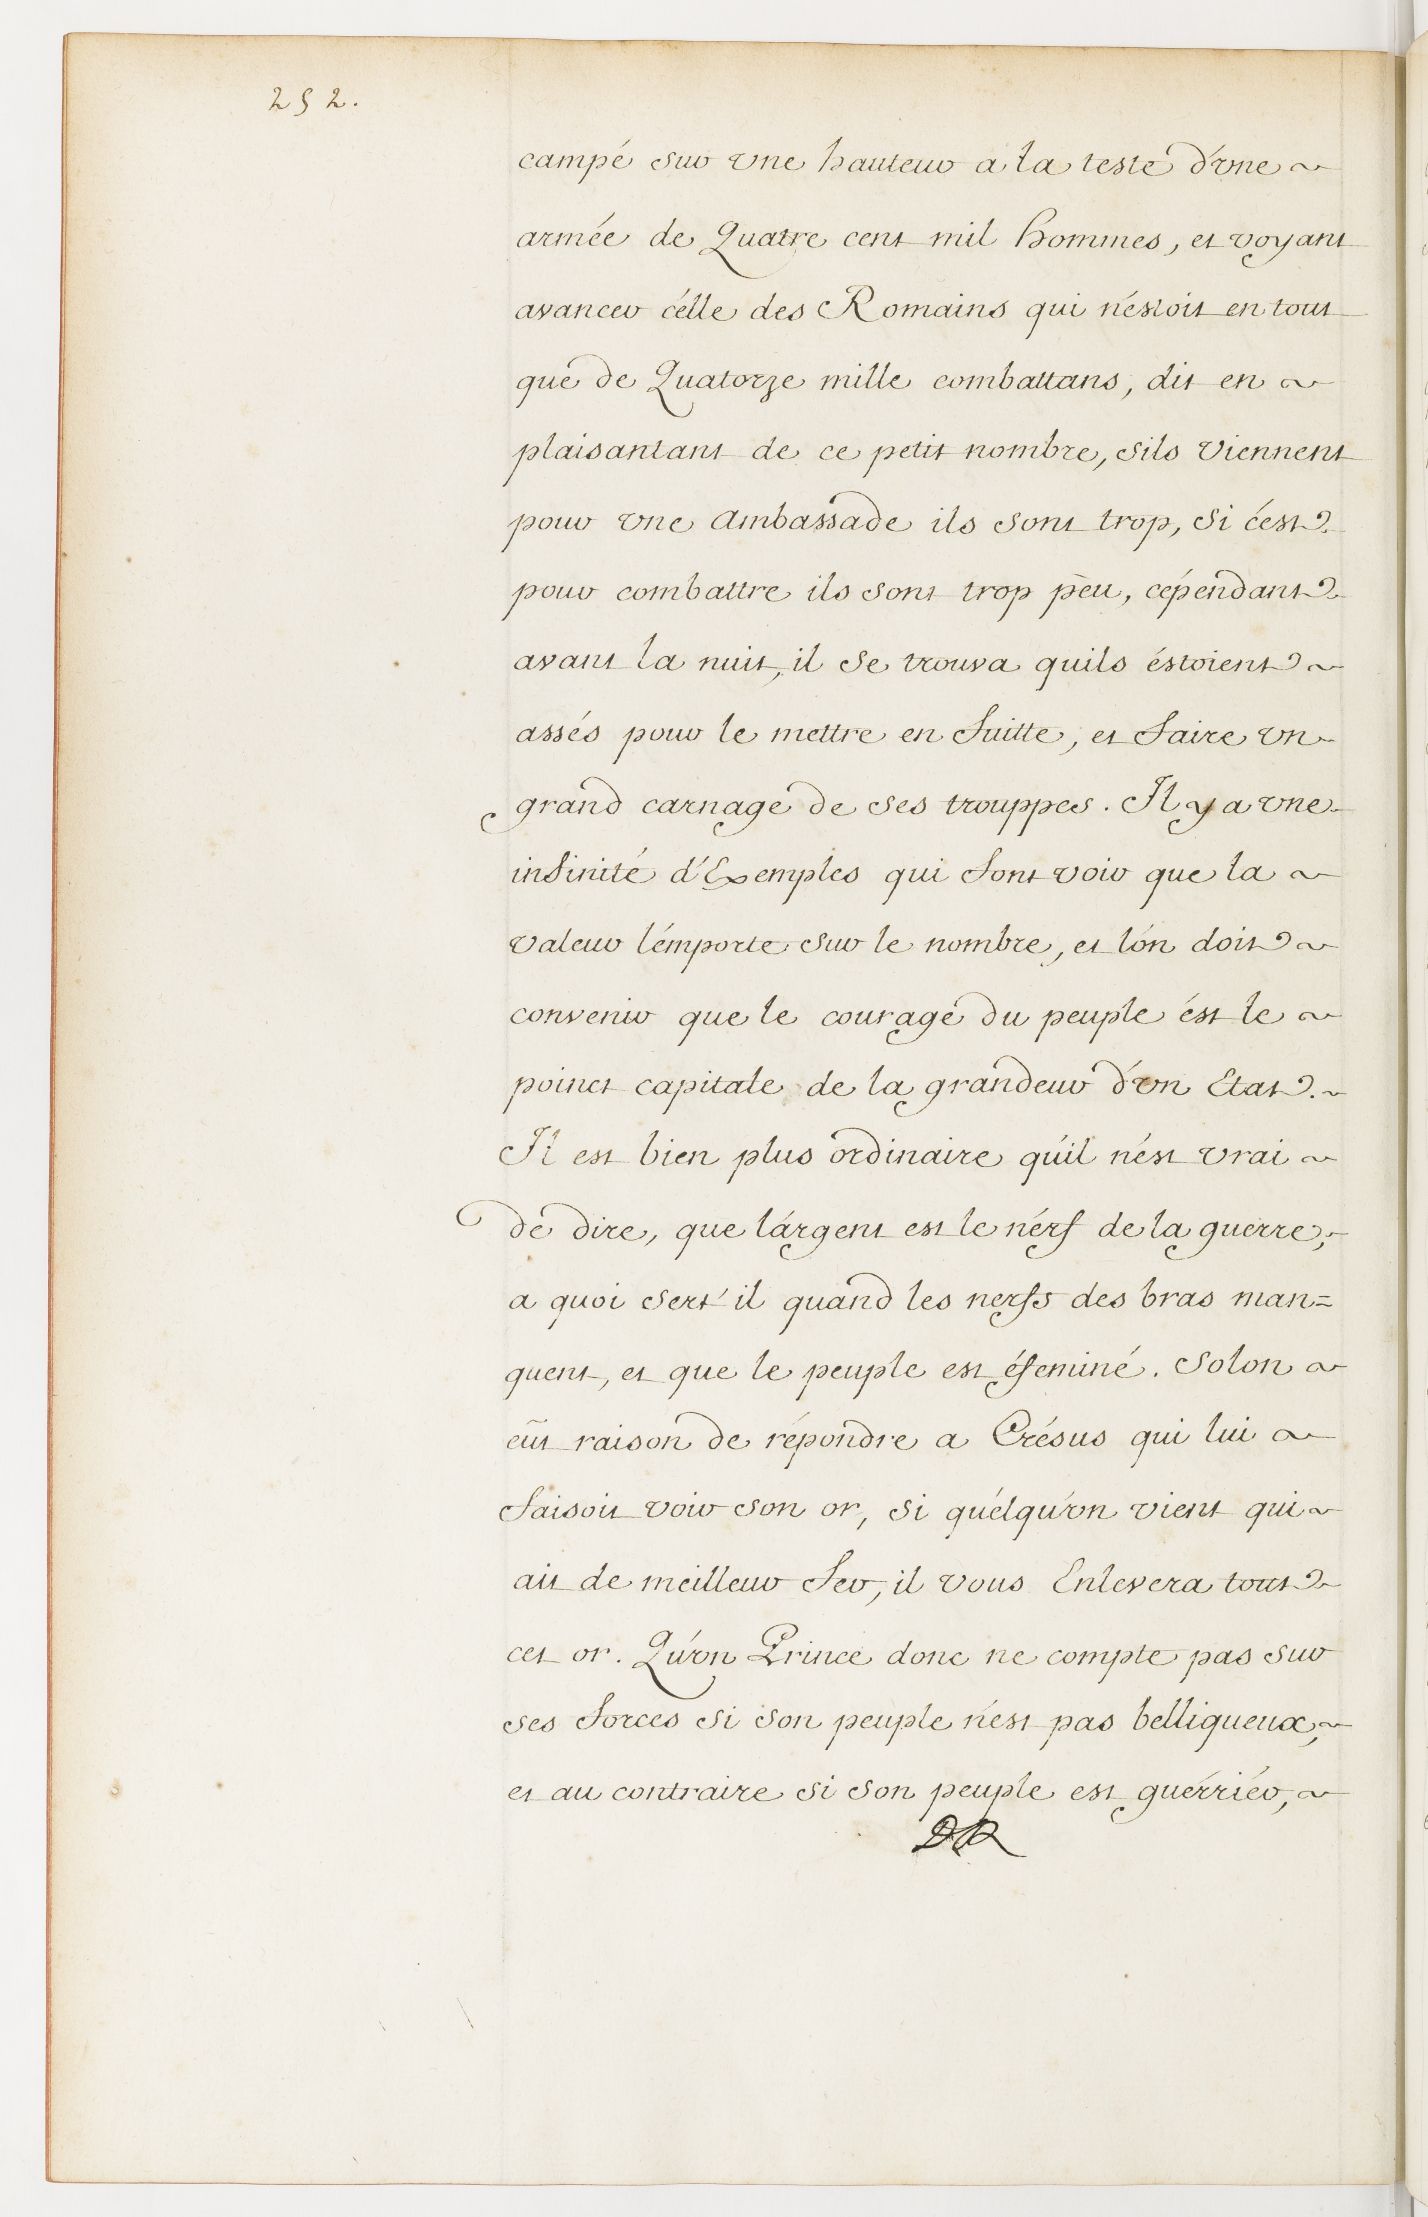 252.
campé sur vne hauteur a la teste d'vne
armée de Quatre cent mil hommes, et voyant
avancer célle des Romains qui n'éstoit en tout
que de Quatorze mille combattans, dit en
plaisantant de ce petit nombre, sils viennent
pour vne ambassade ils sont trop, si c'est
pour combattre ils sont trop peu, cépendant
avant la nuit, il se trouva quils éstoient
assés pour le mettre en fuitte, et faire vn
grand carnage de ses trouppes. Il y a vne
infinité d'Exemples qui font voir que la
valeur l'émporte sur le nombre, et l'ón doit
convenir que le courage du peuple ést le
poinct capitale de la grandeur d'vn Etat.
Il est bien plus ordinaire qu'il n'ést vrai
de dire, que l'árgent est le nérf de la guerre,
a quoi sert'il quand les nerfs des bras man=
quent, et que le peuple est éfeminé. Solon
eût raison de répondre a Crésus qui lui
faisoit voir son or, si quélqu'vn vient qui
ait de meilleur fer, il vous Enlevera tout
cet or. Qu'vn Prince donc ne compte pas sur
ses forces si son peuple n'est pas belliqueux,
et au contraire si son peuple est guérriér,